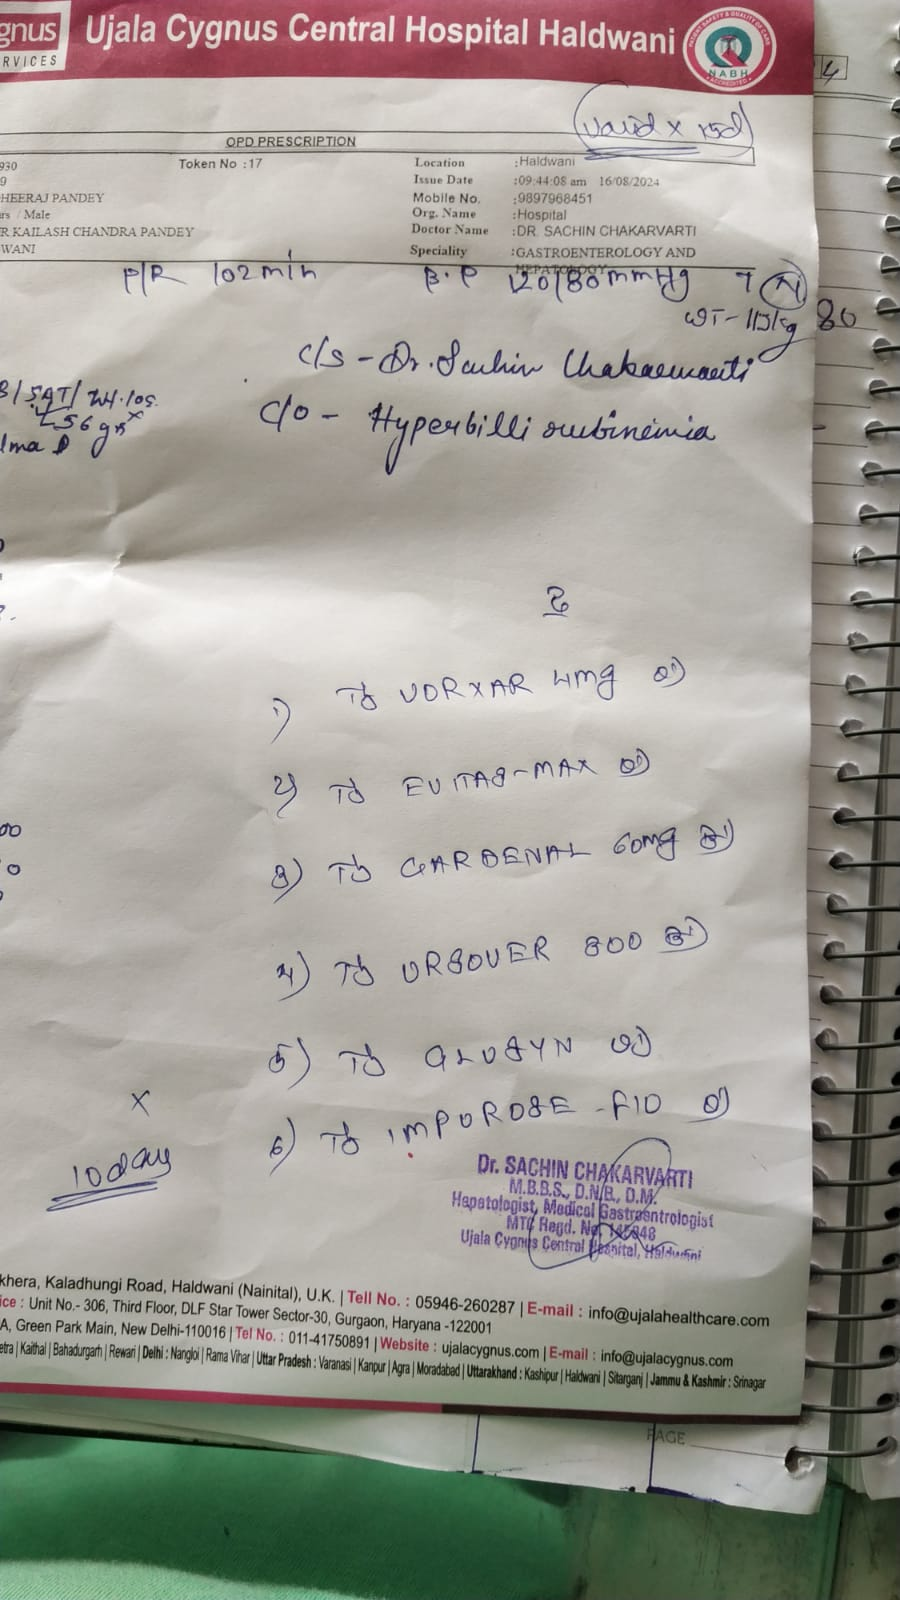 gnus
RVICES
Ujala Cygnus Central Hospital Haldwani
NABH
Valid x 15d
OPD PRESCRIPTION
930
Token No :17
Location :Haldwani
9
Issue Date :09:44:08 am 16/08/2024
HEERAJ PANDEY
Mobile No. :9897968451
rs / Male
Org. Name :Hospital
R KAILASH CHANDRA PANDEY
Doctor Name :DR. SACHIN CHAKARVARTI
WANI
Speciality :GASTROENTEROLOGY AND
HEPATOLOGY
P/R 102 min B.P 120/80 mmHg T N
80
c/s - Dr. Sachin Chakarvarti
c/o - Hyperbillirubinemia
1) VORXAR 4mg
2) EVITAB-MAX
3) GARDENAL 60mg
4) URSOVER 300
5)
6) -F10
x
10 days
Dr. SACHIN CHAKARVARTI
M.B.B.S., D.N.B., D.M.
Hepatologist, Medical Gastroentrologist
Ujala Cygnus Central Hospital, Haldwani
khera, Kaladhungi Road, Haldwani (Nainital), U.K. | Tell No. : 05946-260287 | E-mail : info@ujalahealthcare.com
ice : Unit No.- 306, Third Floor, DLF Star Tower Sector-30, Gurgaon, Haryana -122001
A, Green Park Main, New Delhi-110016 | Tel No. : 011-41750891 | Website : ujalacygnus.com | E-mail : info@ujalacygnus.com
etra | Kaithal | Bahadurgarh | Rewari | Delhi : Nangloi | Rama Vihar | Uttar Pradesh : Varanasi | Kanpur | Agra | Moradabad | Uttarakhand : Kashipur | Haldwani | Sitarganj | Jammu & Kashmir : Srinagar
PAGE